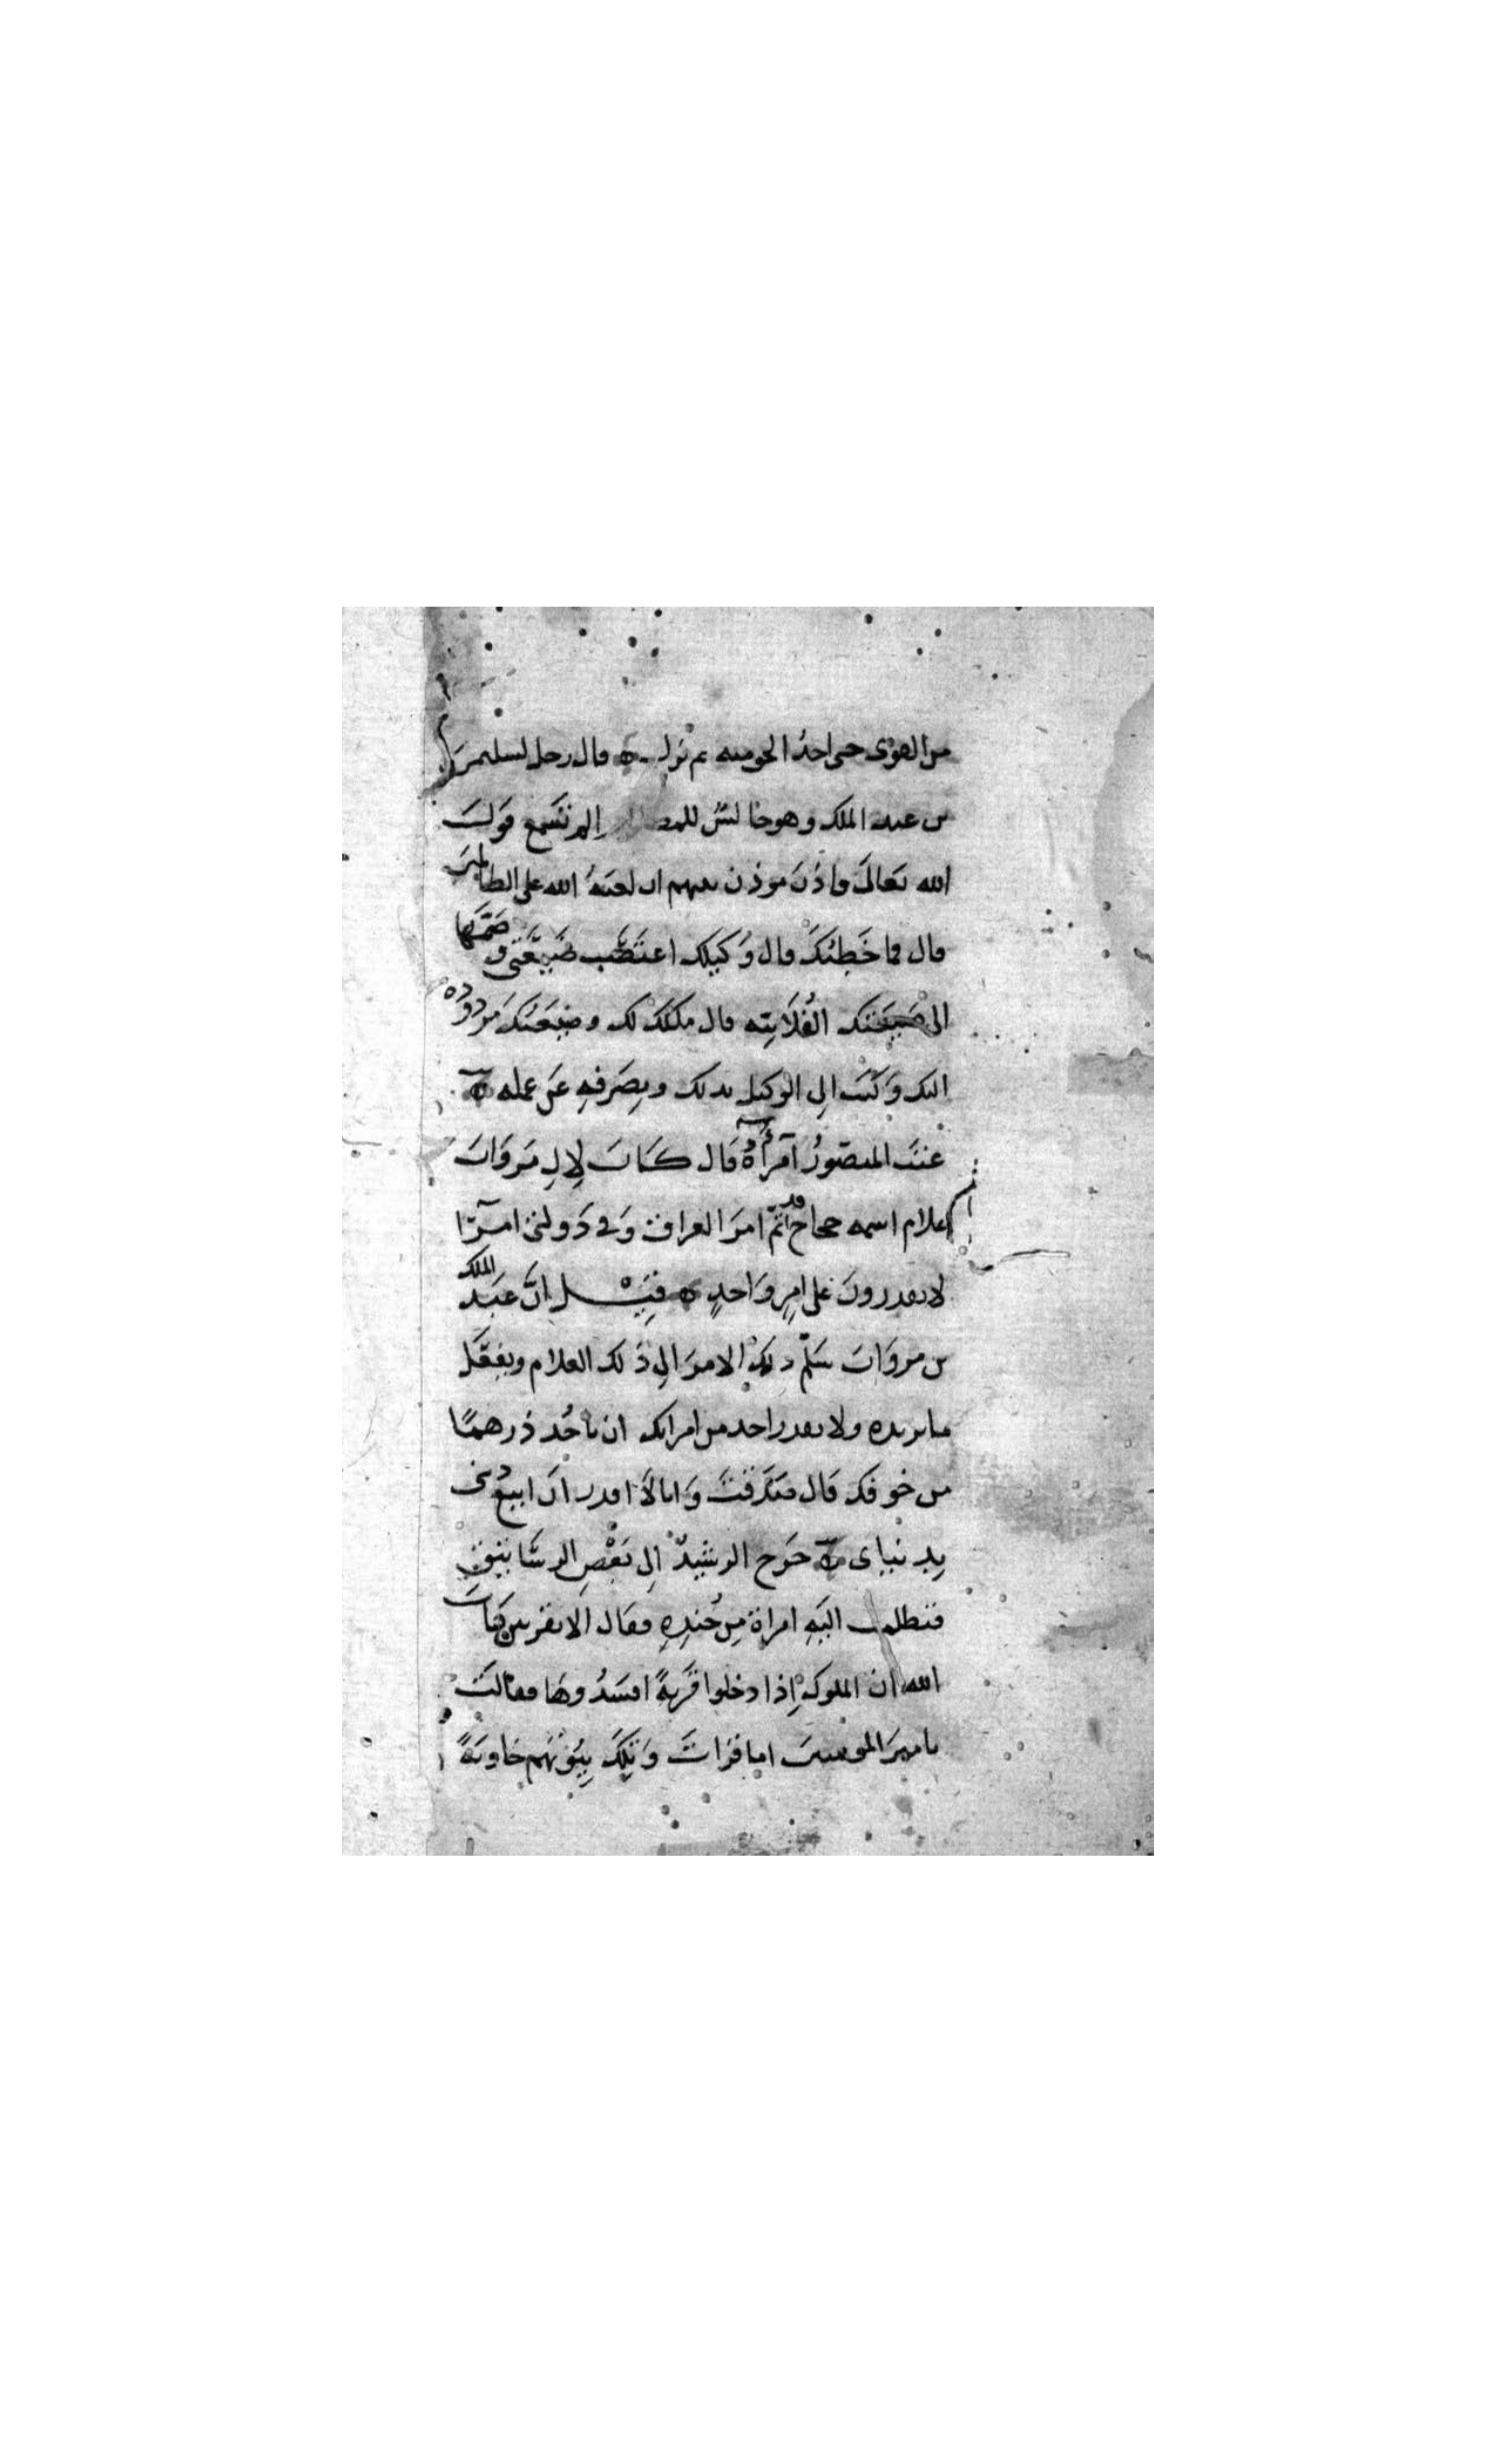 من القوى حتى اخذ الحق منه ثم نزل ه قال رجل لسليمن
بن عبد الملك وهو جالس للمظالم الم تسمع قول
الله تعالى فاذن موذن بينهم ان لعنة الله على الظالمين
قال فما خطبك قال وكيلك اغتصب ضيعتى وضمها
الى ضيعتك الفلانيه قال ملكك لك وضيعتك مردوده
اليك وكتب الى الوكيل بذلك وبصرفه عن عمله ه
المنصور قال كان لال مروان
غلام اسمه حجاح قد اتم امر العراق وفى دولتى امرا
لا يقدرون على امر واحد ه فقيل ان عبد الملك
بن مروان سلم ذلك الامر الى ذلك الغلام ويفعل
ما يريده ولا يقدر احد من امرايك ان ياخد درهما
من خوفك قال صدقت وانا لا اقدر ان ابيع دينى
بدنياى ه خرج الرشيد الى بعض الرساتيق
فتظلمت اليه امراة من جنده فقال الا تقرين كتاب
الله ان الملوك اذا دخلوا قرية افسدوها فقالت
يامير المومنين اما قرات وتلك بيوتهم خاوية